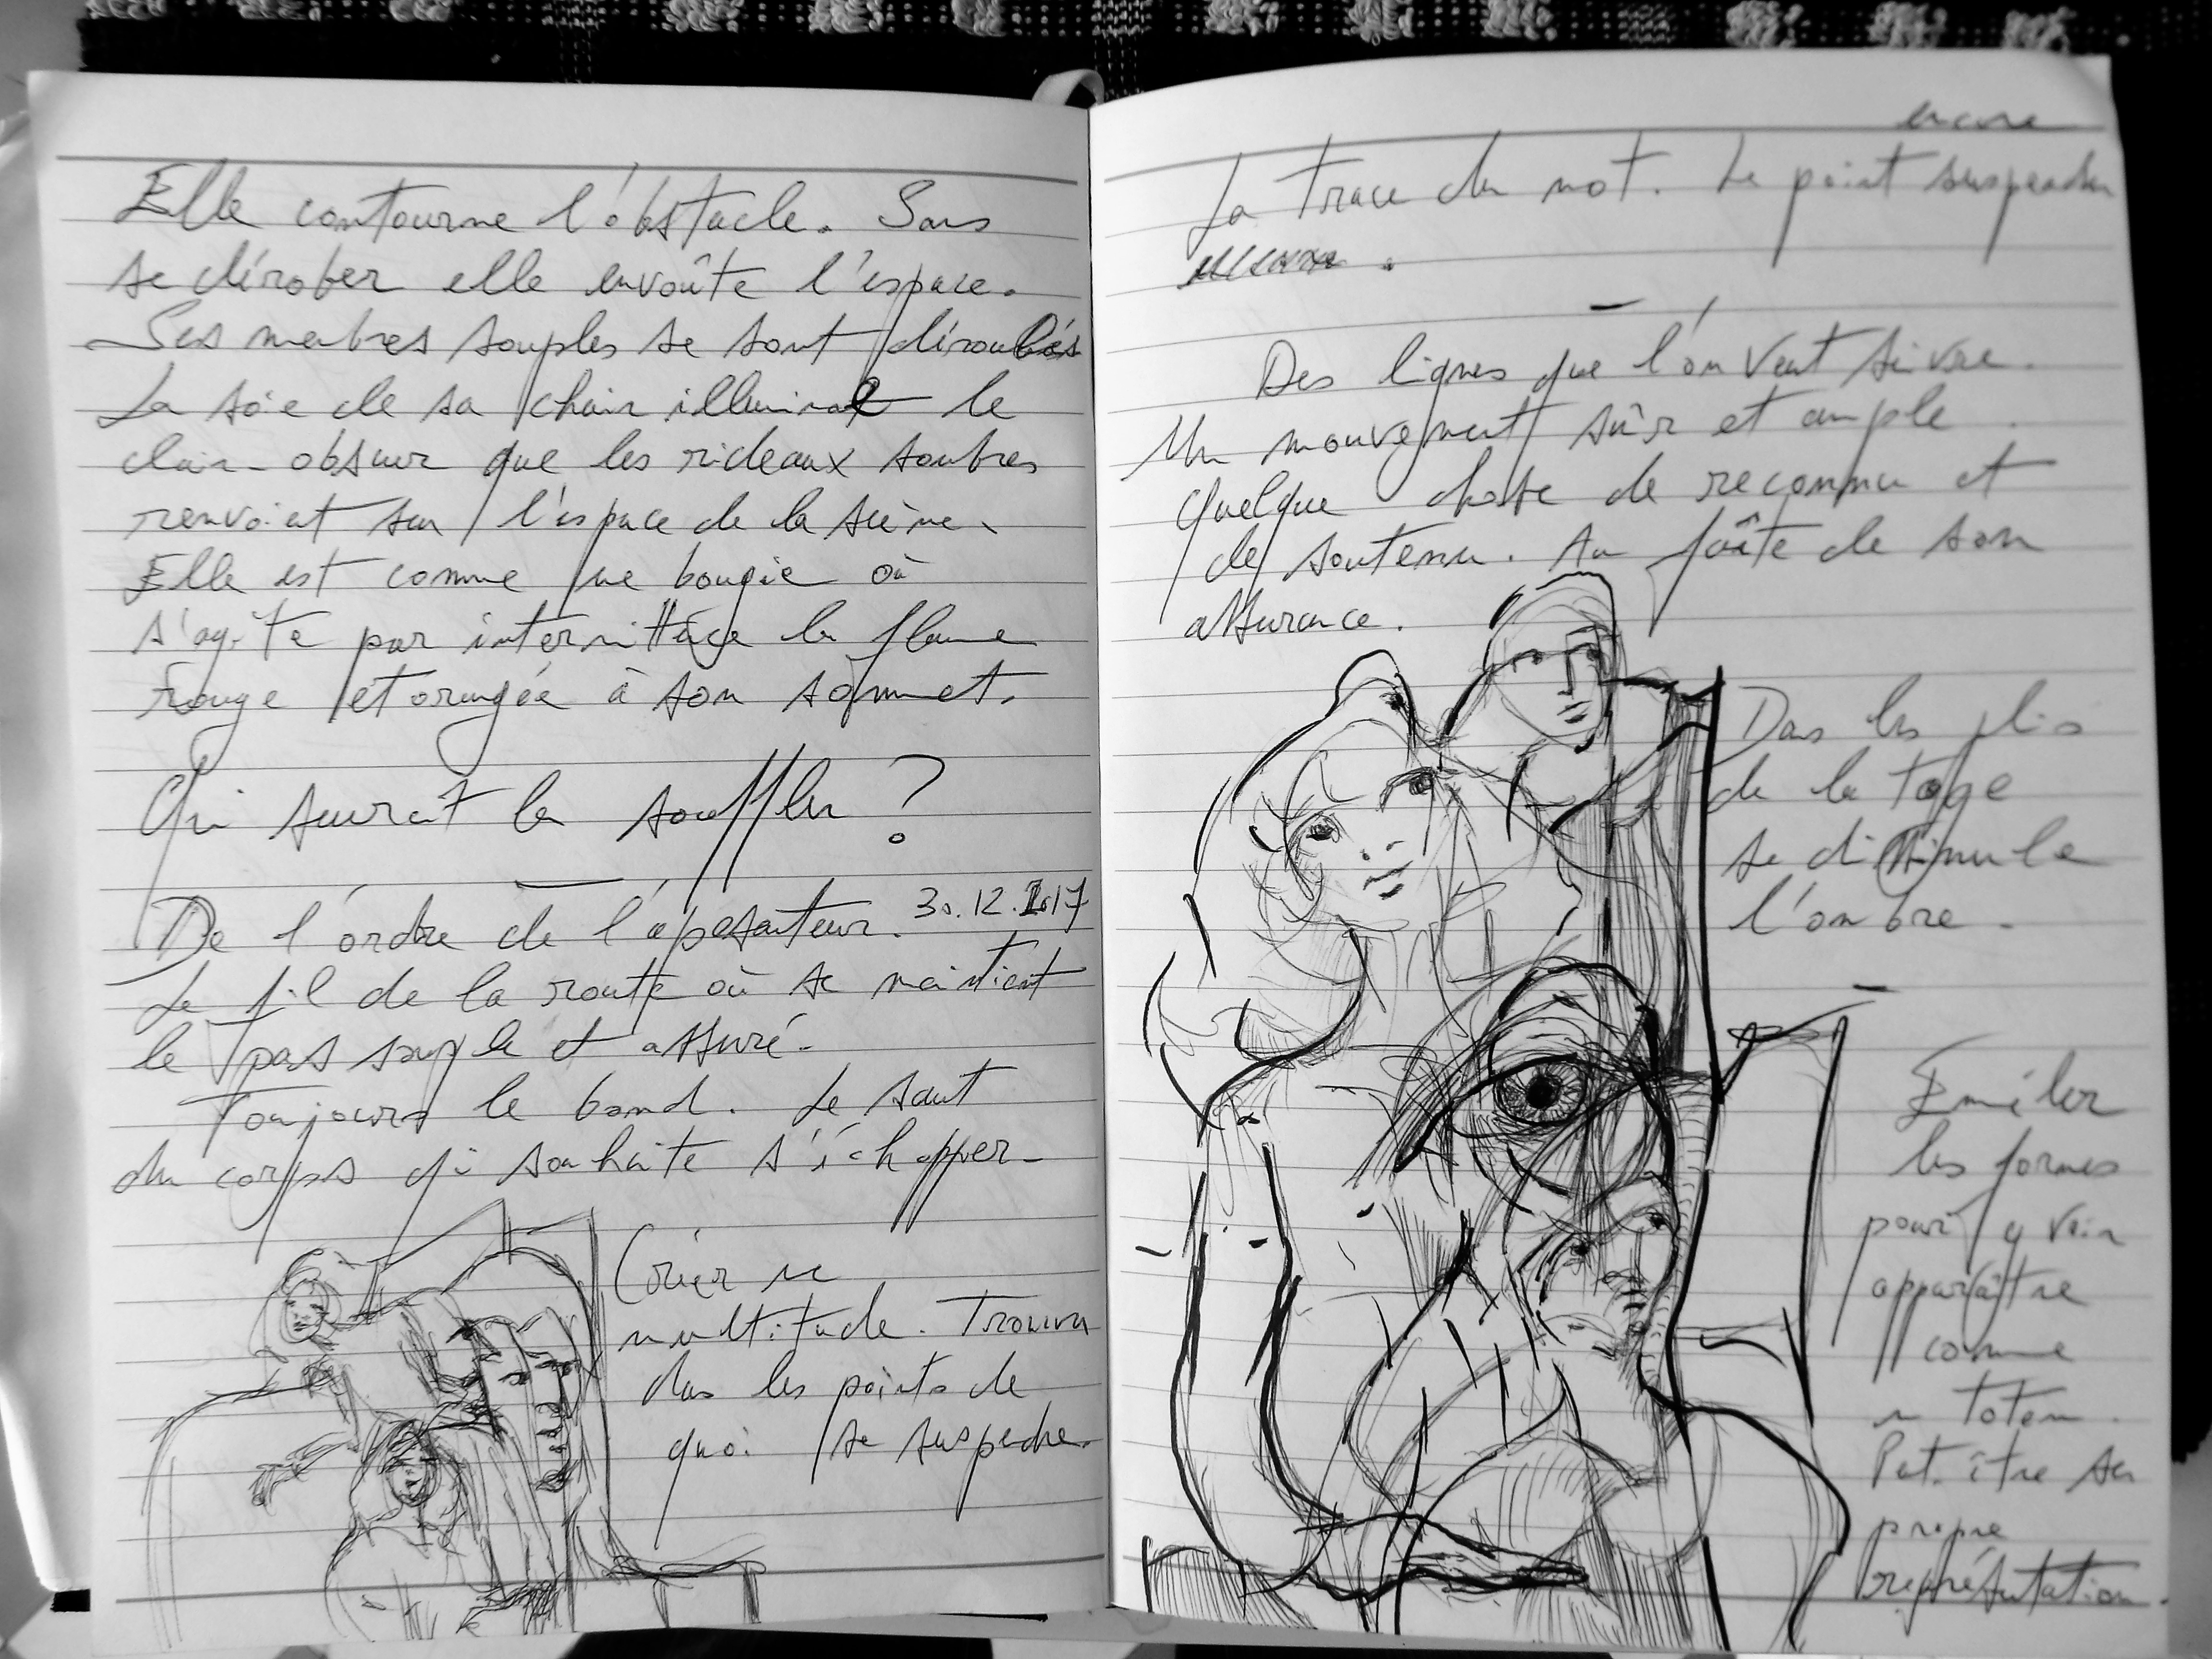 Elle contourne l'obstacle. Sans
se dérober elle envoûte l'espace.
Ses membres souples se sont déroulés
La soie de sa chair illumine le
clair-obscur que les rideaux sombres
renvoient sur l'espace de la scène.
Elle est comme une bougie où
s'agite par intermittence la flamme
rouge et orangée à son sommet.
Qui saurait la souffler ?
De l'ordre de l'apesanteur. 30.12.2017
Le fil de la route où se maintient
le pas souple et assuré.
Toujours le bond. Le saut
du corps qui souhaite s'échapper.
Créer une
multitude. Trouver
dans les points de
quoi se suspendre.
encore
La trace du mot. Le point suspendu
Des lignes que l'on veut suivre.
Un mouvement sûr et ample.
Quelque chose de reconnu et
de soutenu. Au faîte de son
assurance.
Dans les plis
de la toge
se dissimule
l'ombre.
Emêler
les formes
pour y voir
apparaître
comme
un totem.
Peut-être sa
propre
représentation.